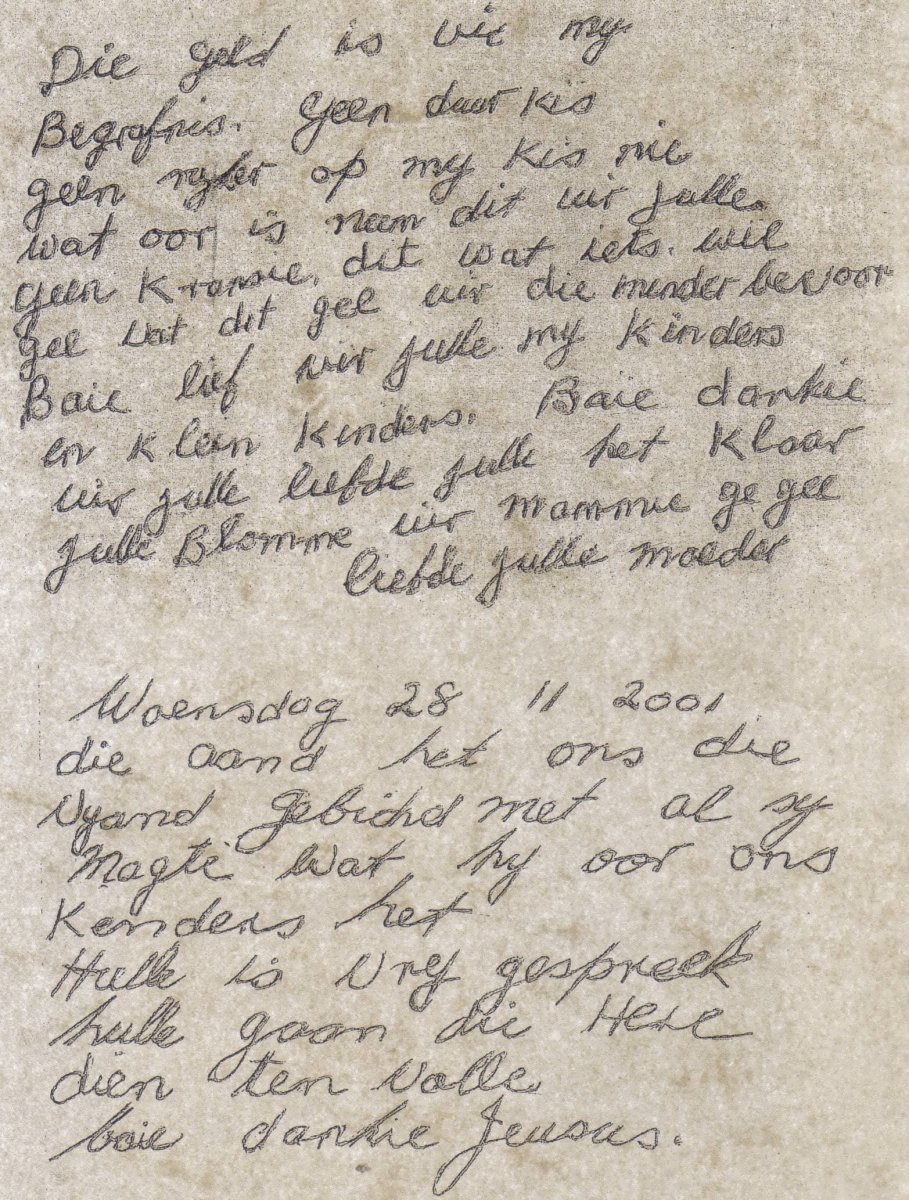 Die geld is vir my
Begrafnis. Geen duur kis
geen op my kis nie
wat oor is neem dit vir julle.
geen Kransie, dit wat iets. wil
gee wat dit gee vir die minder bevoor
Baie lief vir julle my Kinders
en Klein Kinders. Baie dankie
vir julle liefde julle het Klaar
julle Blomme vir mammie ge gee
liefde julle moeder
Woensdag 28 11 2001
die aand het ons die
Vyand gebind met al sy
Magte wat hy oor ons
Kenders het
Hulle is Vry gespreek
hulle gaan die Here
dien ten Volle
baie dankie Jeusus.